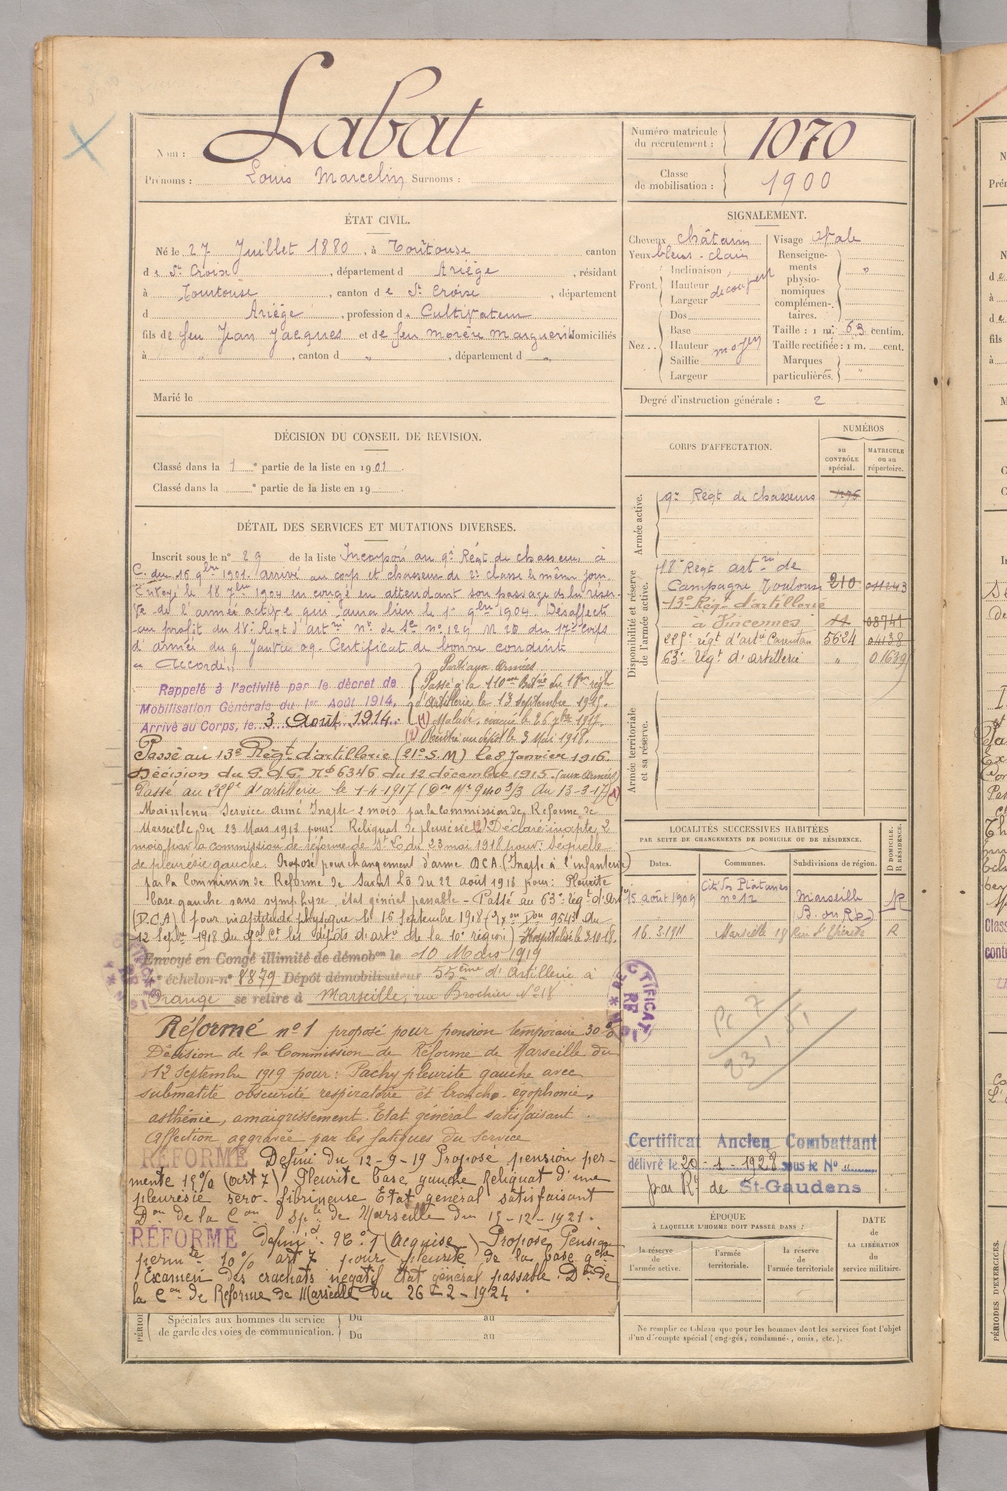 Labat
Nom :
Prénoms : Louis Marcelin Surnoms :
Numéro matricule du recrutement : 1070
Classe de mobilisation : 1900
ÉTAT CIVIL.
Né le 27 Juillet 1880, à Tourtouse canton
de Ste Croix, département d Ariège, résidant
à Tourtouse, canton de Ste Croix, département
d Ariège, profession de Cultivateur
fils de feu Jean Jacques et de feu Marguerite domiciliés
à " , canton d " , département d "
Marié le
SIGNALEMENT.
Cheveux châtain
Yeux bleus-clair
Front. Inclinaison
Hauteur découvert
Largeur
Nez.. Dos
Base
Hauteur moyen
Saillie
Largeur
Visage ovale
Renseignements physionomiques complémentaires. "
Taille : 1 m. 63 centim.
Taille rectifiée : 1 m. cent.
Marques particulières. "
Degré d'instruction générale : 2
DÉCISION DU CONSEIL DE REVISION.
Classé dans la 1e partie de la liste en 1901.
Classé dans la e partie de la liste en 19
DÉTAIL DES SERVICES ET MUTATIONS DIVERSES.
Inscrit sous le n° 29 de la liste Incorporé au 9e Régt de chasseurs à
C. du 16 9bre 1901. Arrivé au corps et chasseur de 2e classe le même jour.
Envoyé le 18 7bre 1904 en congé en attendant son passage dans la réser-
ve de l'armée active qui aura lieu le 1er 9bre 1904. Désaffecté
au profit du 18e Régt d'artrie n° de Sce n° 129 M 20 du 17e corps
d'armée du 9 Janvier 09. Certificat de bonne conduite
Accordé.
Rappelé à l'activité par le décret de
Mobilisation Générale du 1er Août 1914.
Arrivé au Corps, le 3 Août 1914.
Parti aux Armées.
Passé à la 110me Bttrie du 18me régt
d'artillerie le 13 septembre 1915.
(1) Malade, évacué le 26 1917.
(2) Rentré au dépôt le 3 Mai 1918.
Passé au 13e Régt d'artillerie (21e S.M) le 8 Janvier 1916.
Décision du G.Q.G. N° 6346 du 12 décembre 1915. (aux Armées)
Passé au d'artillerie le 1-4-1917 (Don Mlle 9140 3/3 du 13-3-17) (1)
Maintenu Service armé Inapte 2 mois par la Commission de Réforme de
Marseille du 23 Mars 1918 pour : Reliquat de pleurésie (2) Déclaré inapte 2
mois par la commission de réforme de St Lô du 23 mai 1918 pour : séquelle
de pleurésie gauche. Proposé pour changement d'arme DCA (Inapte à l'infanterie)
par la Commission de Réforme de Saint Lô du 22 août 1918 pour : Pleurite
base gauche sans symphyse, état général passable - Passé au 63e régt d'Art
(D.C.A) pour inaptitude physique le 16 Septembre 1918 ( Don 9543 du
12 Septbre 1918 du Gal Ct les dépôts d'artie de la 10e région) Hospitalisé le 3.10.18.
Envoyé en Congé illimité de démobon le 10 Mars 1919
échelon-n° 8879 Dépôt démobilisateur 55ème d'Artillerie à
Orange se retire à Marseille, rue Brochier N° 18
Réformé n° 1 proposé pour pension temporaire 30 %
Décision de la Commission de Réforme de Marseille du
12 Septembre 1919 pour : Pachypleurite gauche avec
submatité obscurité respiratoire et broncho-égophonie,
asthénie, amaigrissement. Etat général satisfaisant.
Affection aggravée par les fatigues du service
RÉFORMÉ Défini du 12-9-19 Proposé pension per-
mente 15% (art 7) Pleurite base gauche Reliquat d'une
pleurésie séro-fibrineuse Etat général satisfaisant
Don de la Con Sple de Marseille du 15-12-1921.
RÉFORMÉ défini d. N° 1 (Acquise) Proposé Pension
permte 10% art 7 pour pleurite de la base gche
Examen des crachats négatif Etat général passable. Don de
la Con de Réforme de Marseille du 26-2-1924.
Spéciales aux hommes du service de garde des voies de communication.
Du au
Du au
CORPS D'AFFECTATION.
NUMÉROS
au CONTRÔLE spécial.
MATRICULE ou au répertoire.
Armée active.
9e Régt de chasseurs
Disponibilité et réserve de l'armée active.
18e Régt artrie de
Campagne Toulouse 210
13e Rég. d'artillerie
à Vincennes 11 08741
régt d'artie Carentan 5624 04138
63e régt d'artillerie " 01639
Armée territoriale et sa réserve.
LOCALITÉS SUCCESSIVES HABITÉES
PAR SUITE DE CHANGEMENTS DE DOMICILE OU DE RÉSIDENCE.
Dates.
Communes.
Subdivisions de région.
D DOMICILE. R RÉSIDENCE.
15 août 1909 Cité des Platanes n° 12 Marseille R
16.3.1911 Marseille 18 R
RECTIFICATIF
Pc 7
23 / 1 / 51
Certificat Ancien Combattant
délivré le 20-1-1928 sous le N°
par Rt de St-Gaudens
ÉPOQUE
À LAQUELLE L'HOMME DOIT PASSER DANS :
la réserve de l'armée active.
l'armée territoriale.
la réserve de l'armée territoriale
DATE de LA LIBÉRATION du service militaire.
Ne remplir ce tableau que pour les hommes dont les services font l'objet
d'un décompte spécial (engagés, condamnés, omis, etc.).